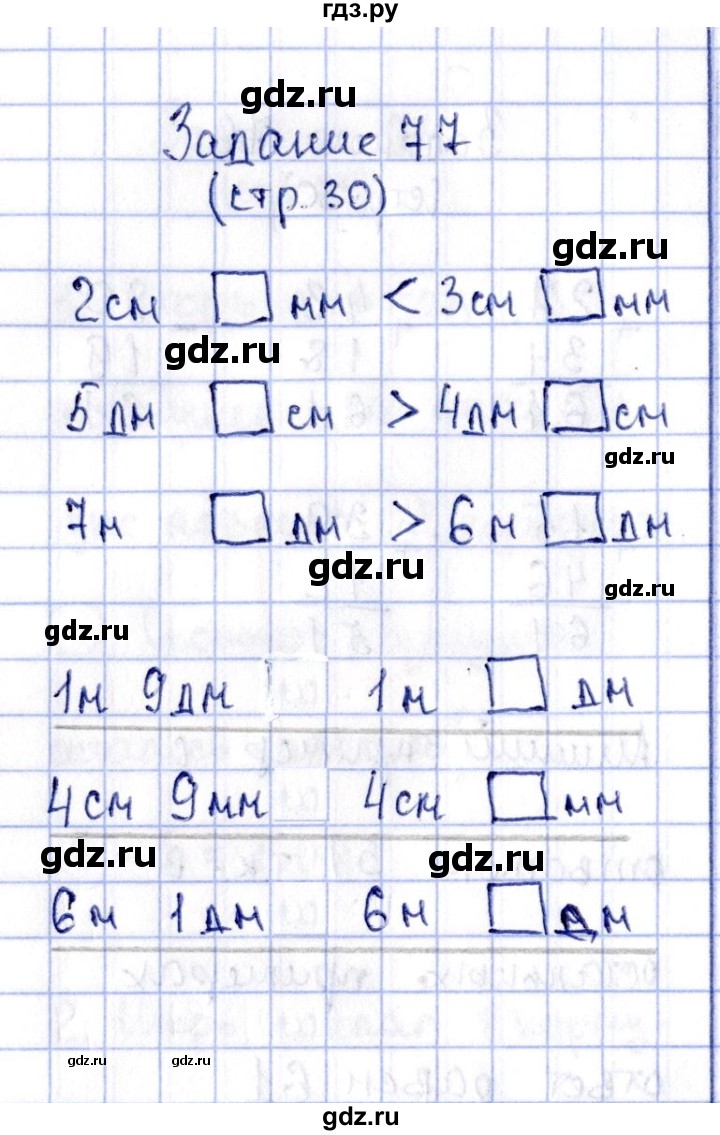 гдз.ру
gdz.ru
Задание 77
(стр. 30)
gdz.ru
2см □ мм < 3см □ мм
gdz.ru
5дм □ см > 4дм □ см
gdz.ru
7м □ дм > 6м □ дм
gdz.ru
gdz.ru
gdz.ru
1м 9дм 1м □ дм
4см 9мм 4см □ мм
gdz.ru gdz.ru
6м 1дм 6м □ дм
gdz.ru gdz.ru
gdz.ru